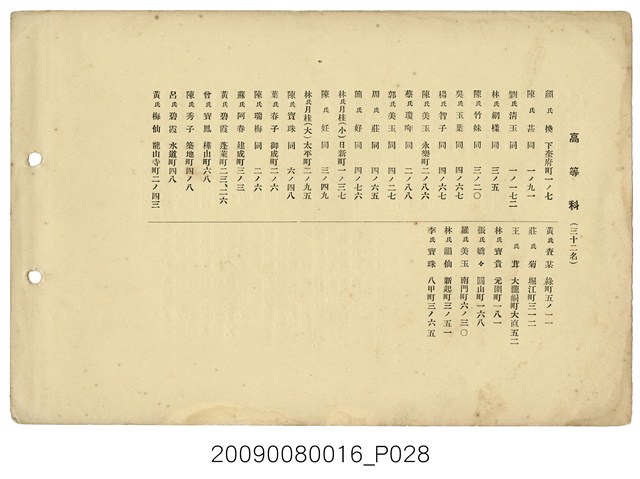 高等科（三十二名）
顏氏換 下奎府町一ノ七
陳氏甚 同 一ノ九一
劉氏清玉 同 一ノ一七二
林氏網樣 同 三ノ五
陳氏竹妹 同 三ノ二〇
吳氏玉葉 同 四ノ六七
楊氏智子 同 四ノ六七
陳氏美玉 永樂町二ノ八六
蔡氏瓊 同 二ノ八八
郭氏美玉 同 四ノ二七
周氏莊 同 四ノ六五
簡氏好 同 四ノ七六
林氏月桂（小） 日新町一ノ三七
陳氏妊 同 三ノ四九
林氏月桂（大） 太平町二ノ九五
陳氏寶珠 同 六ノ四八
葉氏春子 御成町二ノ六
陳氏瑞梅 同 二ノ六
蘇氏阿春 建成町三ノ三
黃氏碧霞 蓬萊町二三、二六
曾氏寶鳳 樺山町六八
陳氏秀子 築地町四ノ八
呂氏碧霞 水道町四八
黃氏梅仙 龍山寺町二ノ四三
黃氏査某 綠町五ノ一一
莊氏菊 堀江町三一二
王氏茸 大龍峒町大直五二
林氏寶貴 元園町一八一
張氏嬌々 圓山町一六八
羅氏美玉 南門町六ノ三〇
林氏韻仙 新起町三ノ五一
李氏寶珠 八甲町三ノ六五
20090080016_P028